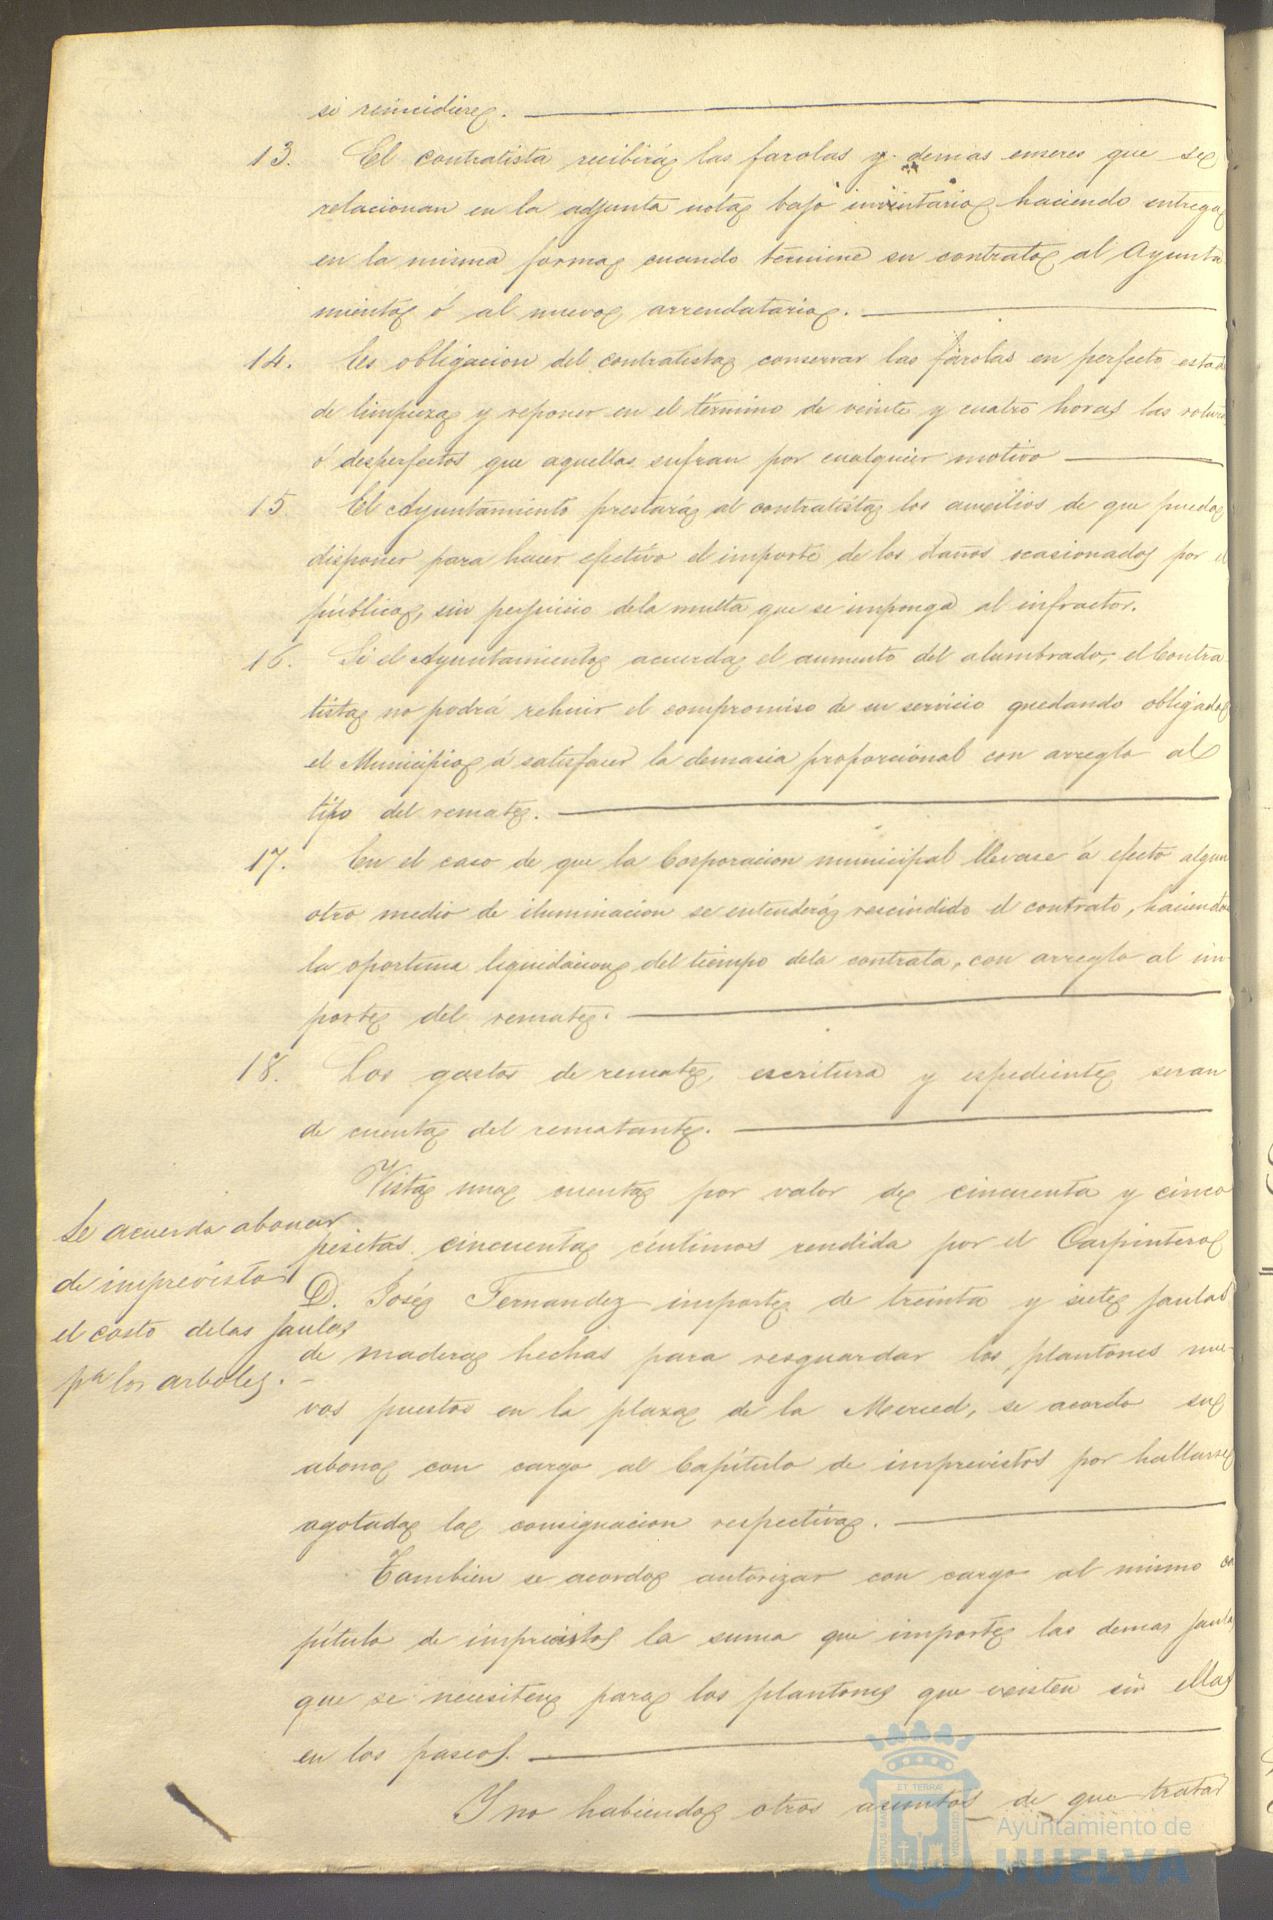 si reincidiere.
13. El contratista recibirá las farolas y demas enseres que se
relacionan en la adjunta nota bajo inventario haciendo entrega
en la misma forma cuando termine su contrato al Ayunta
miento ó al nuevo arrendatario.
14. Es obligacion del contratista conservar las farolas en perfecto estado
de limpieza y reponer en el término de veinte y cuatro horas las roturas
ó desperfectos que aquellas sufran por cualquier motivo
15. El Ayuntamiento prestará al contratista los auxilios de que pueda
disponer para hacer efectivo el importe de los daños ocasionados por el
público, sin perjuicio dela multa que se imponga al infractor.
16. Si el Ayuntamiento acuerda el aumento del alumbrado, el Contra
tista no podrá rehuir el compromiso de su servicio quedando obligado
el Municipio á satisfacer la demasia proporcional con arreglo al
tipo del remate.
17. En el caso de que la Corporacion municipal llevase á efecto algun
otro medio de iluminacion se entenderá rescindido el contrato, haciendo
la oportuna liquidacion del tiempo dela contrata, con arreglo al im-
porte del remate.
18. Los gastos de remate, escritura y espediente seran
de cuenta del rematante.
Vista una cuenta por valor de cincuenta y cinco
pesetas cincuenta céntimos rendida por el Carpintero
D. José Fernandez importe de treinta y siete jaulas
de madera hechas para resguardar los plantones nue-
vos puestos en la plaza de la Merced, se acordo su
abono con cargo al Capítulo de imprevistos por hallarse
agotada la consignacion respectiva.
Se acuerda abonar
de imprevistos
el costo delas jaulas
pa los arboles.
Tambien se acordo autorizar con cargo al mismo ca
pítulo de imprevistos la suma que importe las demas jaulas
que se necesiten para los plantones que existen sin ellas
en los paseos.
Y no habiendo otros asuntos de que tratar
ET TERRÆ
PORTUS MARIS
CUSTODIA
Ayuntamiento de
HUELVA